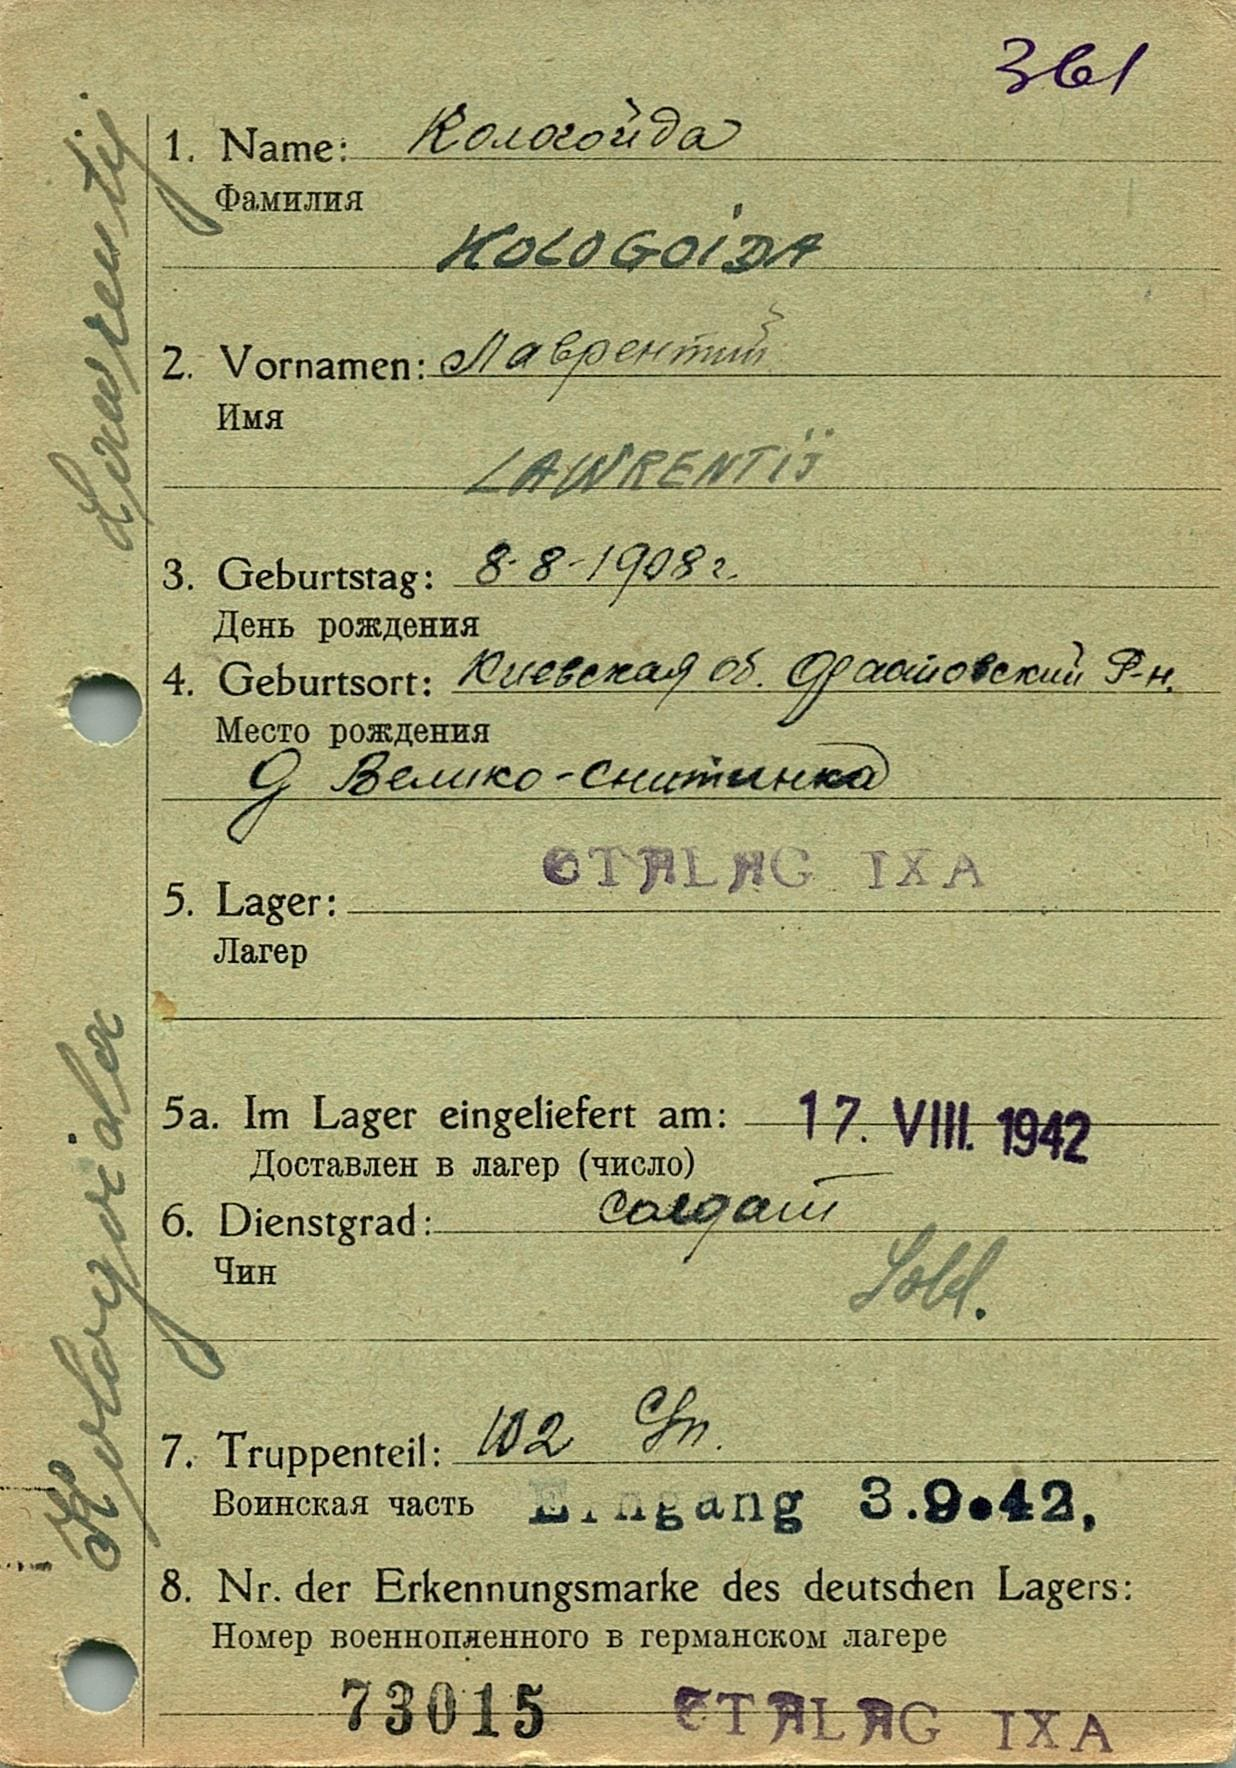 361
1. Name: Кологойда
Фамилия
KOLOGOIDA
2. Vornamen: Лаврентий
Имя
LAWRENTIJ
3. Geburtstag: 8-8-1908г.
День рождения
4. Geburtsort: Киевская об. Фастовский Р-н.
Место рождения
д Велико-Снитинка
STALAG IXA
5. Lager:
Лагер
5a. Im Lager eingeliefert am: 17. VIII. 1942
Доставлен в лагер (число)
6. Dienstgrad: Солдат
Чин
Sold.
7. Truppenteil: 102 Сп.
Воинская часть Eingang 3.9.42,
8. Nr. der Erkennungsmarke des deutschen Lagers:
Номер военнопленного в германском лагере
73015 STALAG IXA
Kologoida Lawrentij